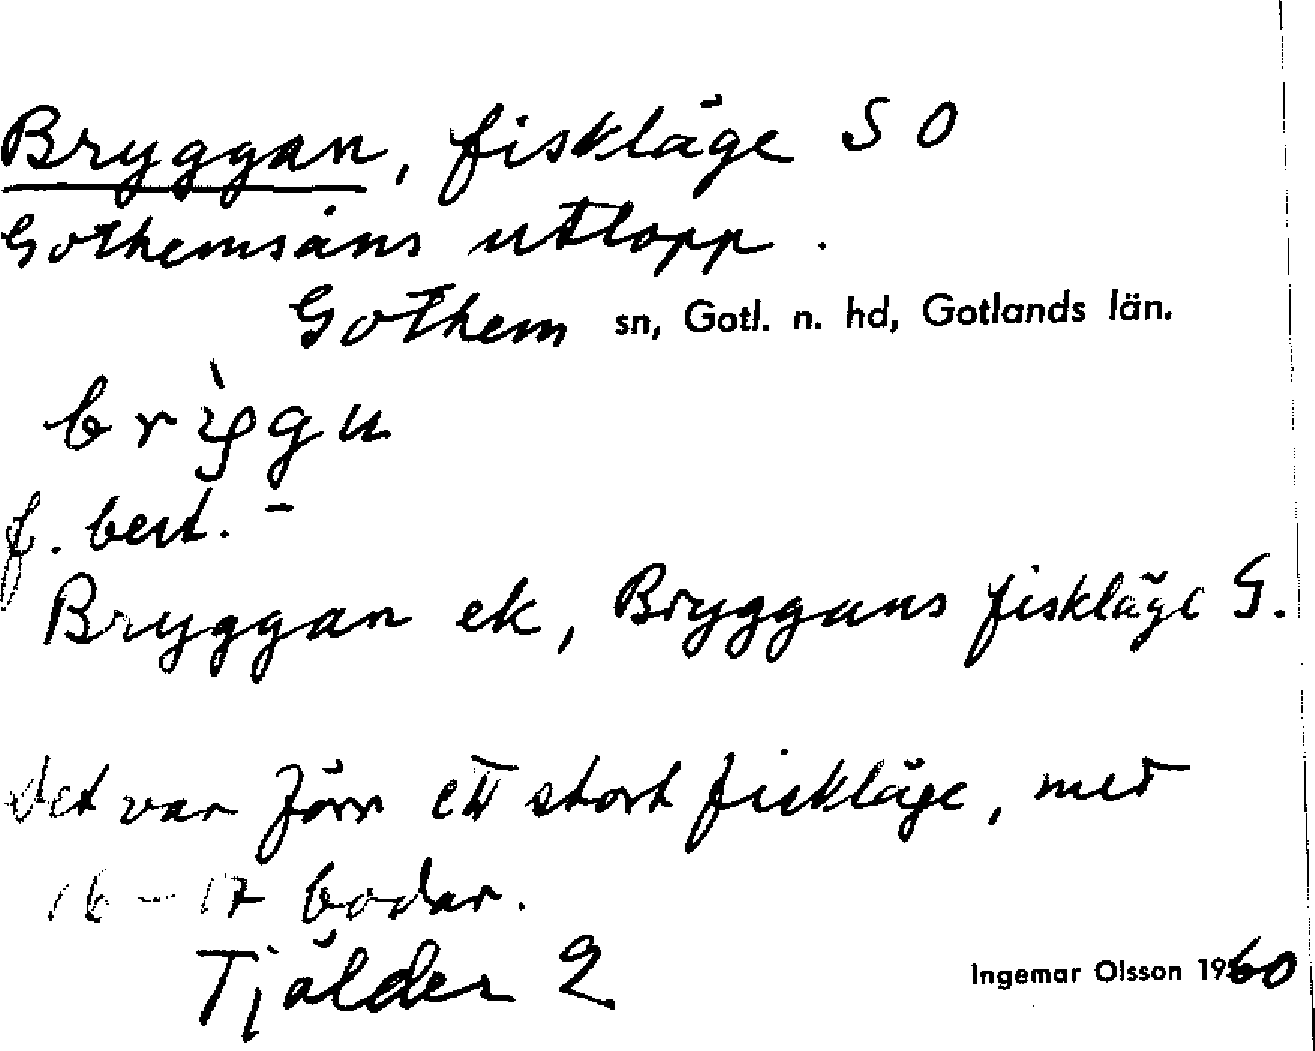 Bryggan, fiskläge S O
Gothemsåns utlopp.
Gothem sn, Gotl. n. hd, Gotlands län.
f. best. -
Bryggan ek, Bryggans fiskläge G.
Det var förr ett stort fiskläge, med
16-17 bodar.
Tjälder 2
Ingemar Olsson 1960